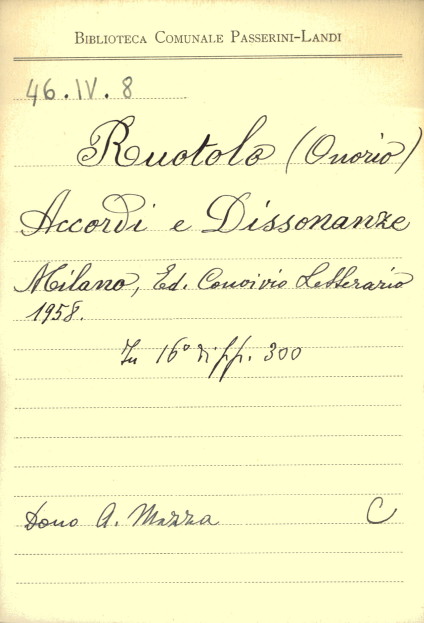 Biblioteca Comunale Passerini-Landi
46.IV.8
Ruotolo (Onorio)
Accordi e Dissonanze
Milano, Ed. Convivio Letterario
1958.
In 16° di pp. 300
Dono A. Mazza C